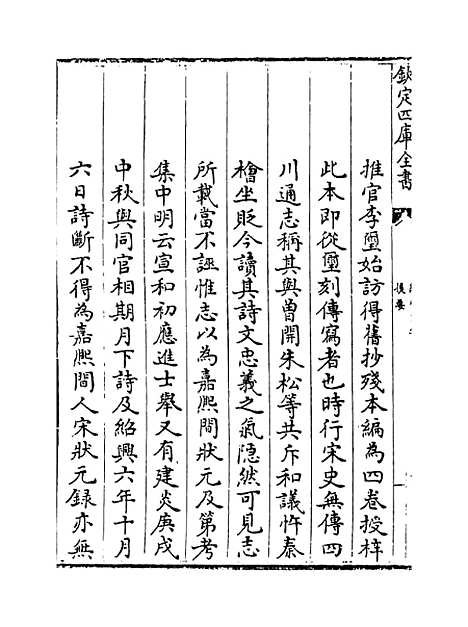 欽定四庫全書
提要
推官李璽始訪得舊抄殘本編為四卷授梓
此本即從璽刻傳寫者也時行宋史無傳四
川通志稱其與曾開朱松等共斥和議忤秦
檜坐貶今讀其詩文忠義之氣隠然可見志
所載當不誣惟志以為嘉熈間狀元及第考
集中明云宣和初應進士舉又有建炎庚戌
中秋與同官相期月下詩及紹興六年十月
六日詩斷不得為嘉熈間人宋狀元録亦無